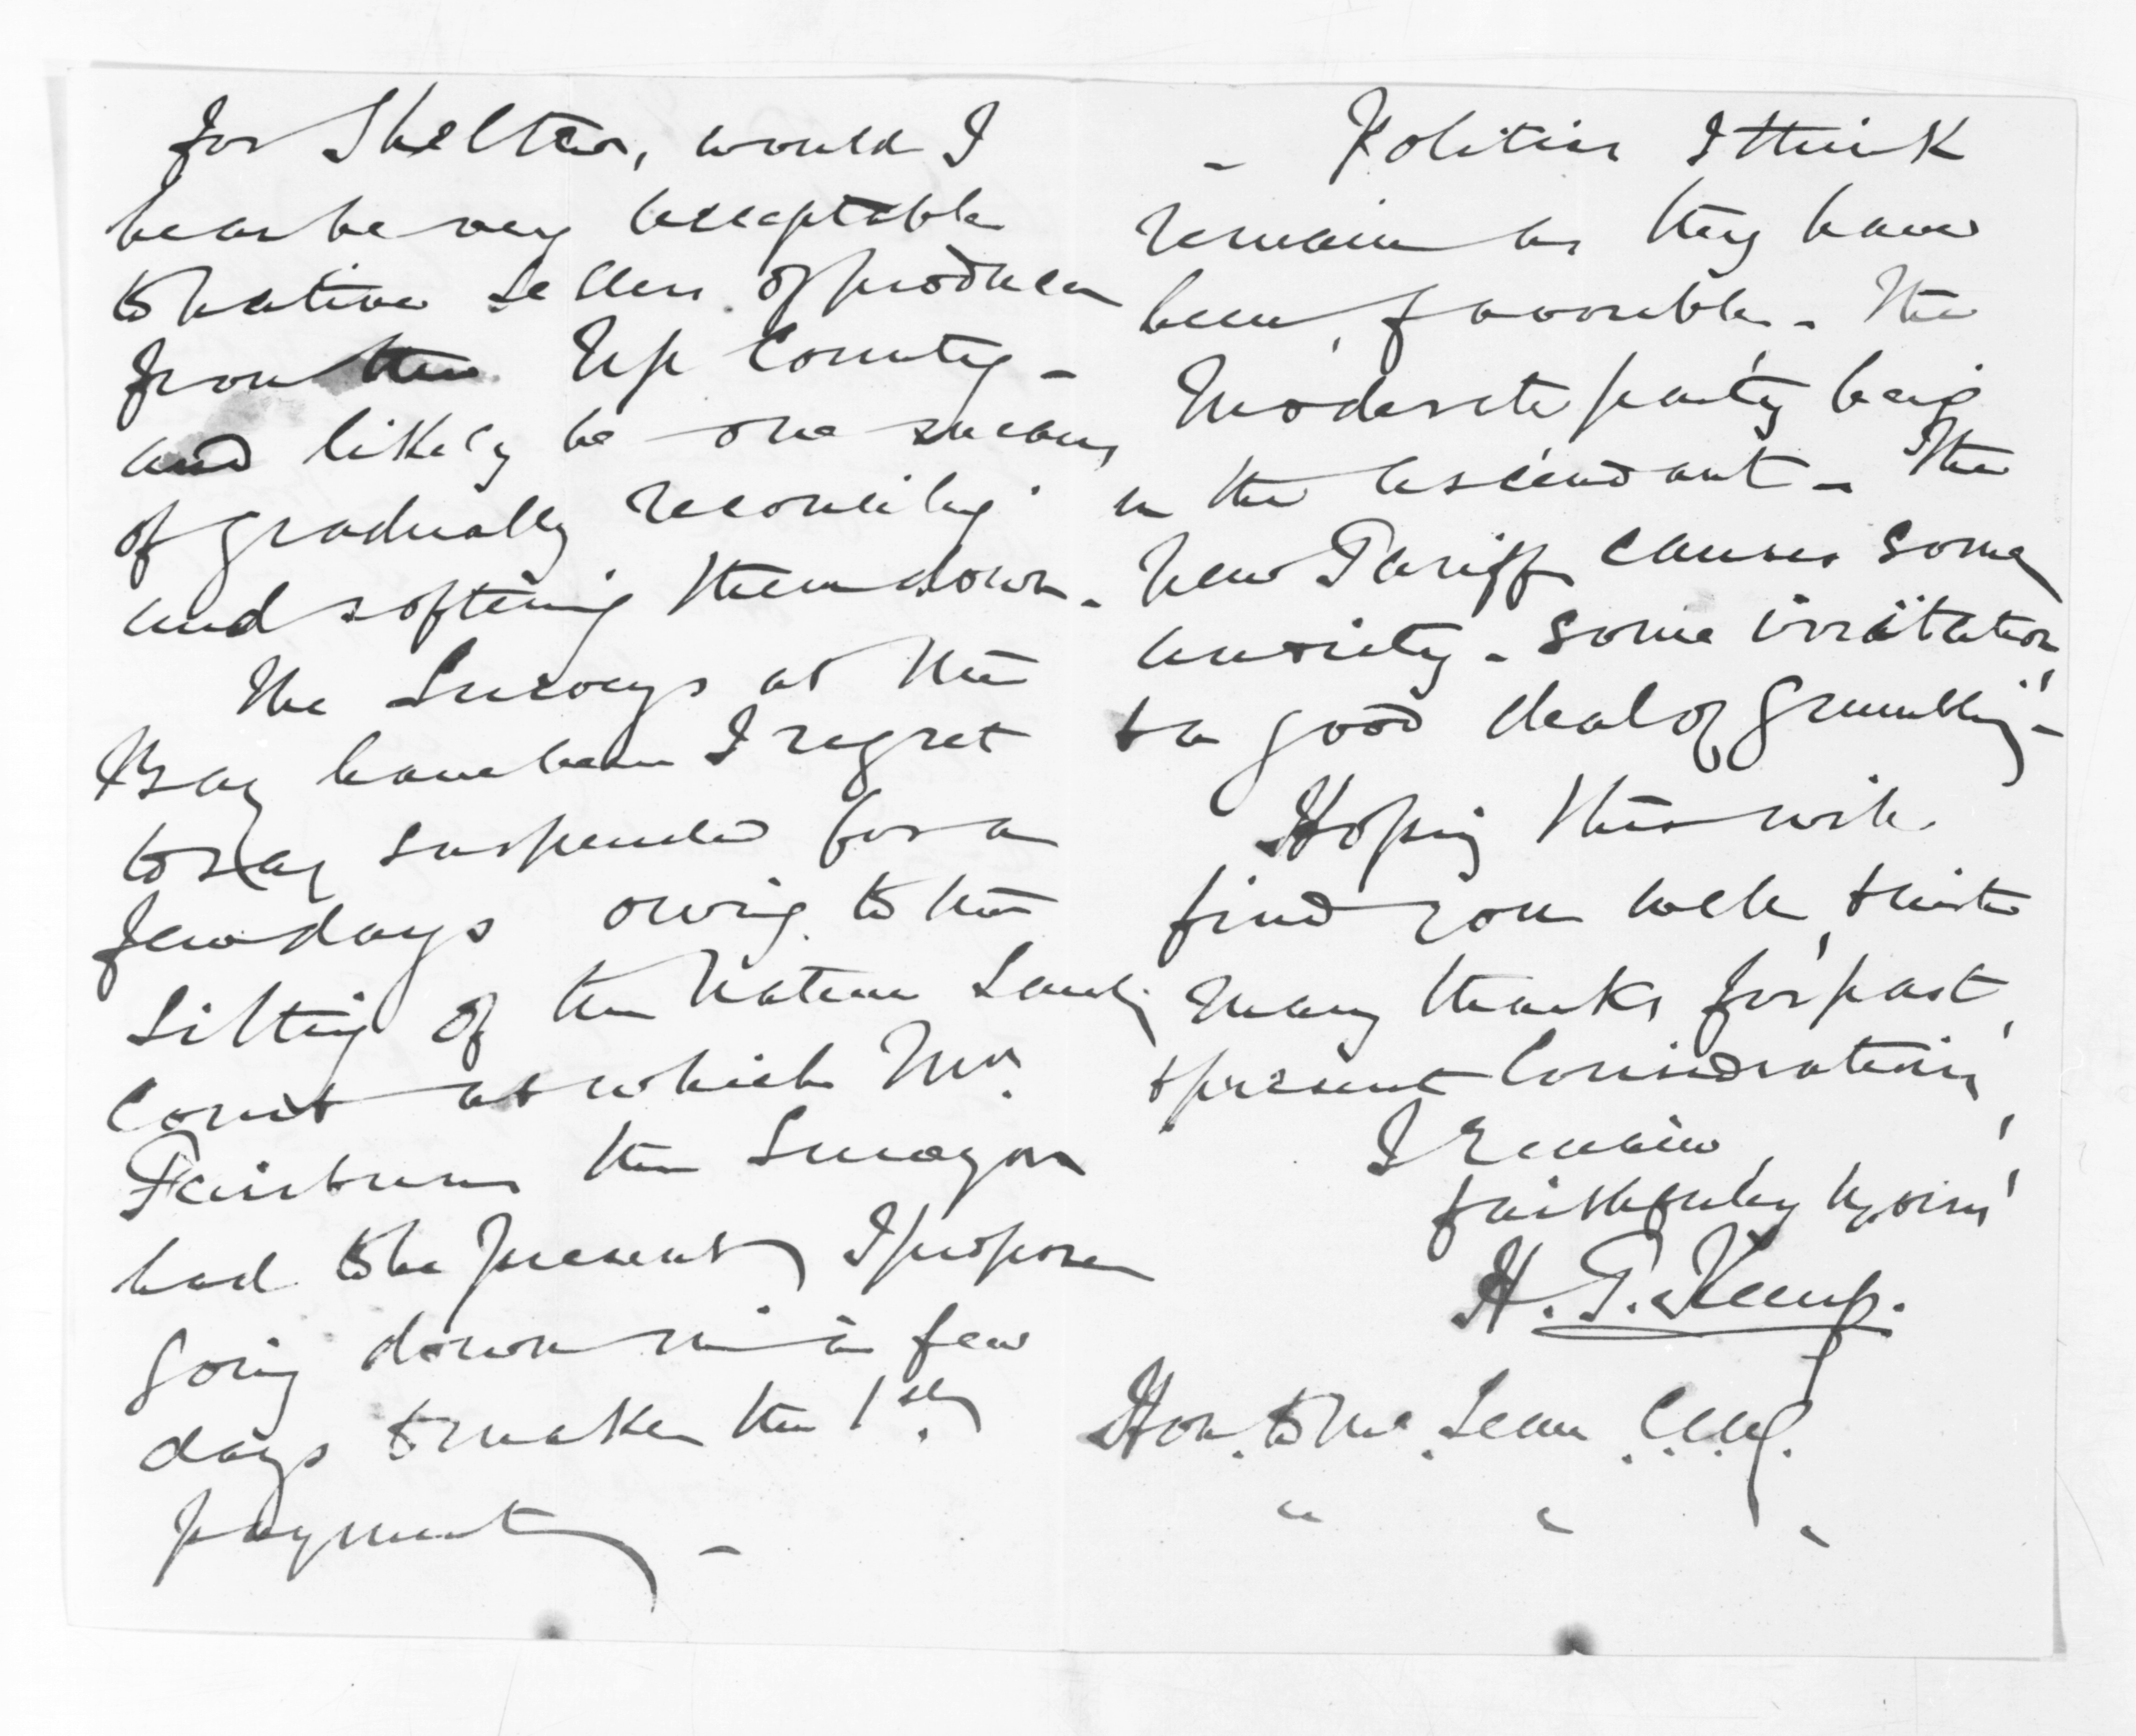 for Shelter, would I
hear be very acceptable
to Native Sellers of produce
from the Up Country -
and likely be one means
of gradually reconciling
and softening them down -
The Surveys at the
Bay have been I regret
to say suspended for a
few days owing to the
Sitting of the Native Lands
Court at which Mr.
Fairburn the Surveyor
had to be present, I propose
going down in a few
days to make the 1st
payment, -
- Politics I think
remain as they have
been, favorable. - The
Moderate party being
in the ascendant - The
New Tariff causes some
anxiety - some irritation,
& a good deal of grumbling -
Hoping this will
find you well, & with
many thanks for past,
& present Consideration,
I remain,
faithfully yours,
H. T. Kemp.
Hon. D. McLean C.M.G.
" " "